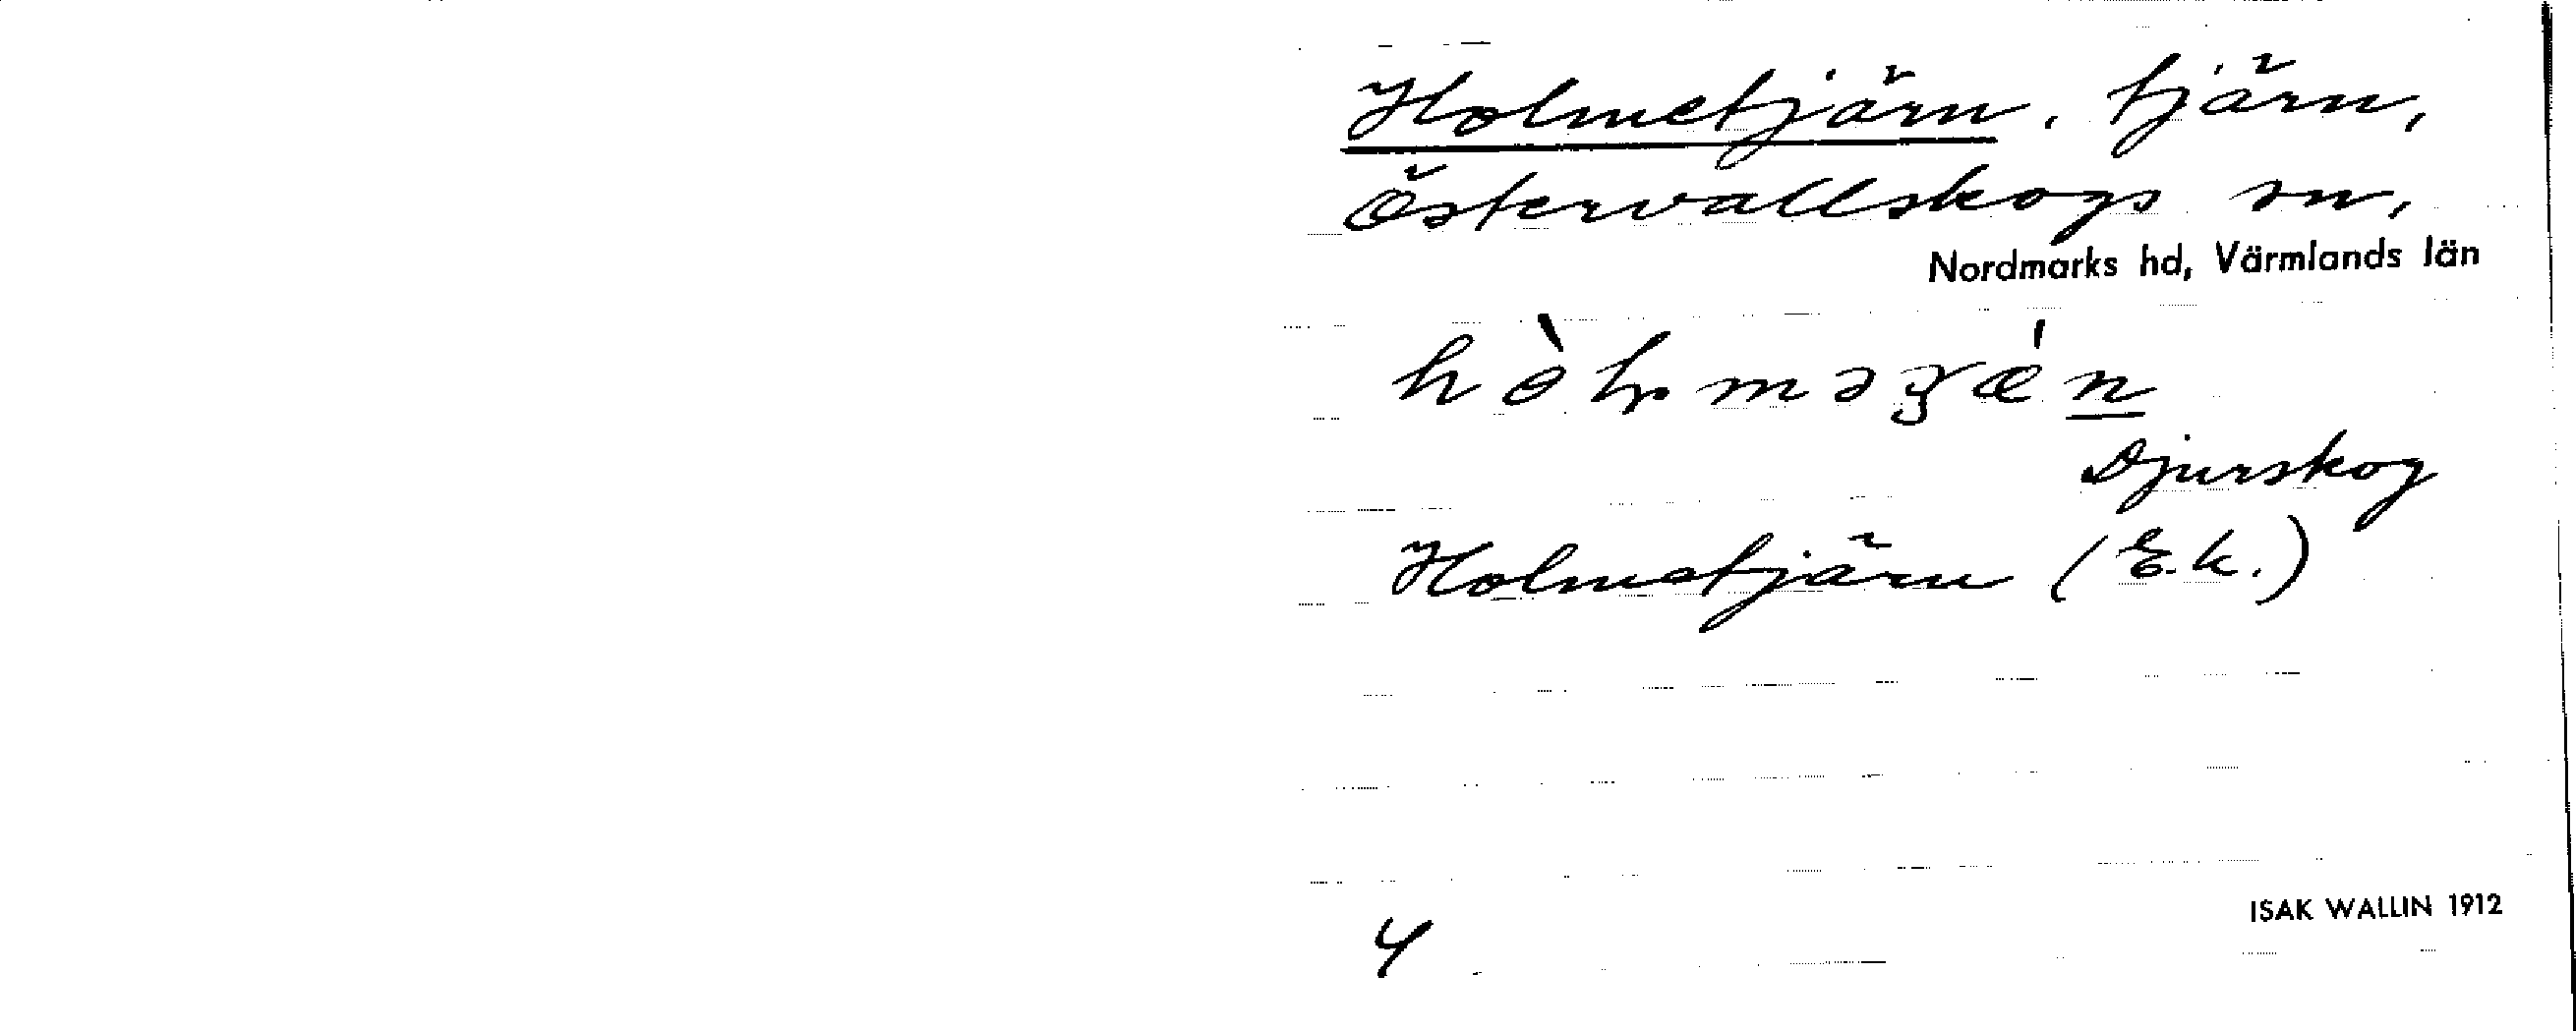 Holmetjärn, tjärn,
Östervallskogs sn,
Nordmarks hd, Värmlands län
Djurskog
Holmetjärn (E.k.)
ISAK WALLIN 1912
4